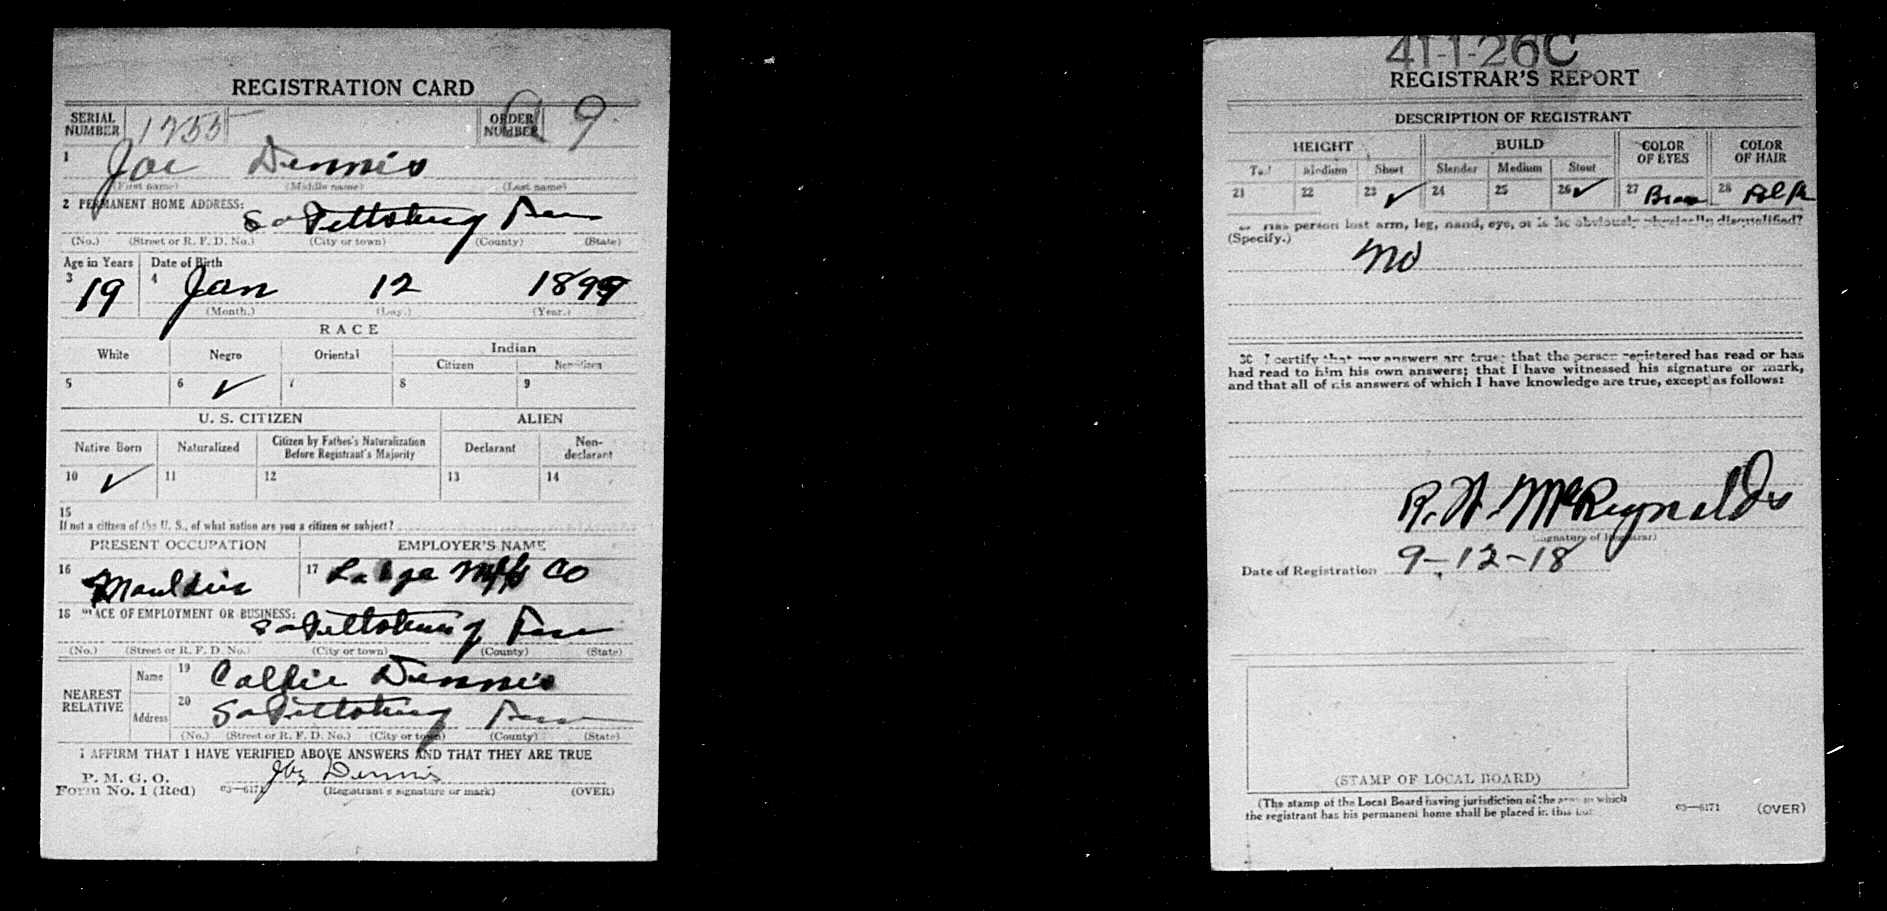 REGISTRATION CARD
SERIAL NUMBER 1755 ORDER NUMBER A 9
1 Joe Dennis
(First name) (Middle name) (Last name)
2 PERMANENT HOME ADDRESS: So Pittsburg Tenn
(No.) (Street or R. F. D. No.) (City or town) (County) (State)
Age in Years Date of Birth
3 19 4 Jan 12 1899
(Month.) (Day.) (Year.)
RACE
White Negro Oriental Indian
Citizen Noncitizen
5 6 ✓ 7 8 9
U. S. CITIZEN ALIEN
Native Born Naturalized Citizen by Father's Naturalization Before Registrant's Majority Declarant Non-declarant
10 ✓ 11 12 13 14
15
If not a citizen of the U. S., of what nation are you a citizen or subject?
PRESENT OCCUPATION EMPLOYER'S NAME
16 17 Mfg Co
18 PLACE OF EMPLOYMENT OR BUSINESS:
So Pittsburg Tenn
(No.) (Street or R. F. D. No.) (City or town) (County) (State)
NEAREST RELATIVE Name 19 Callie Dennis
Address 20 So Pittsburg Tenn
(No.) (Street or R. F. D. No.) (City or town) (County) (State)
I AFFIRM THAT I HAVE VERIFIED ABOVE ANSWERS AND THAT THEY ARE TRUE
P. M. G. O.
Form No. 1 (Red) 03—6171 Dennis
(Registrant's signature or mark) (OVER)
41-1-26C
REGISTRAR'S REPORT
DESCRIPTION OF REGISTRANT
HEIGHT BUILD COLOR OF EYES COLOR OF HAIR
Tall Medium Short Slender Medium Stout
21 22 23 ✓ 24 25 26 ✓ 27 Brown 28 Black
29 Has person lost arm, leg, hand, eye, or is he obviously physically disqualified?
(Specify.) No
30 I certify that my answers are true; that the person registered has read or has
had read to him his own answers; that I have witnessed his signature or mark,
and that all of his answers of which I have knowledge are true, except as follows:
R. W. McReynolds
(Signature of Registrar)
Date of Registration 9-12-18
(STAMP OF LOCAL BOARD)
(The stamp of the Local Board having jurisdiction of the area in which
the registrant has his permanent home shall be placed in this box.)
03—6171 (OVER)